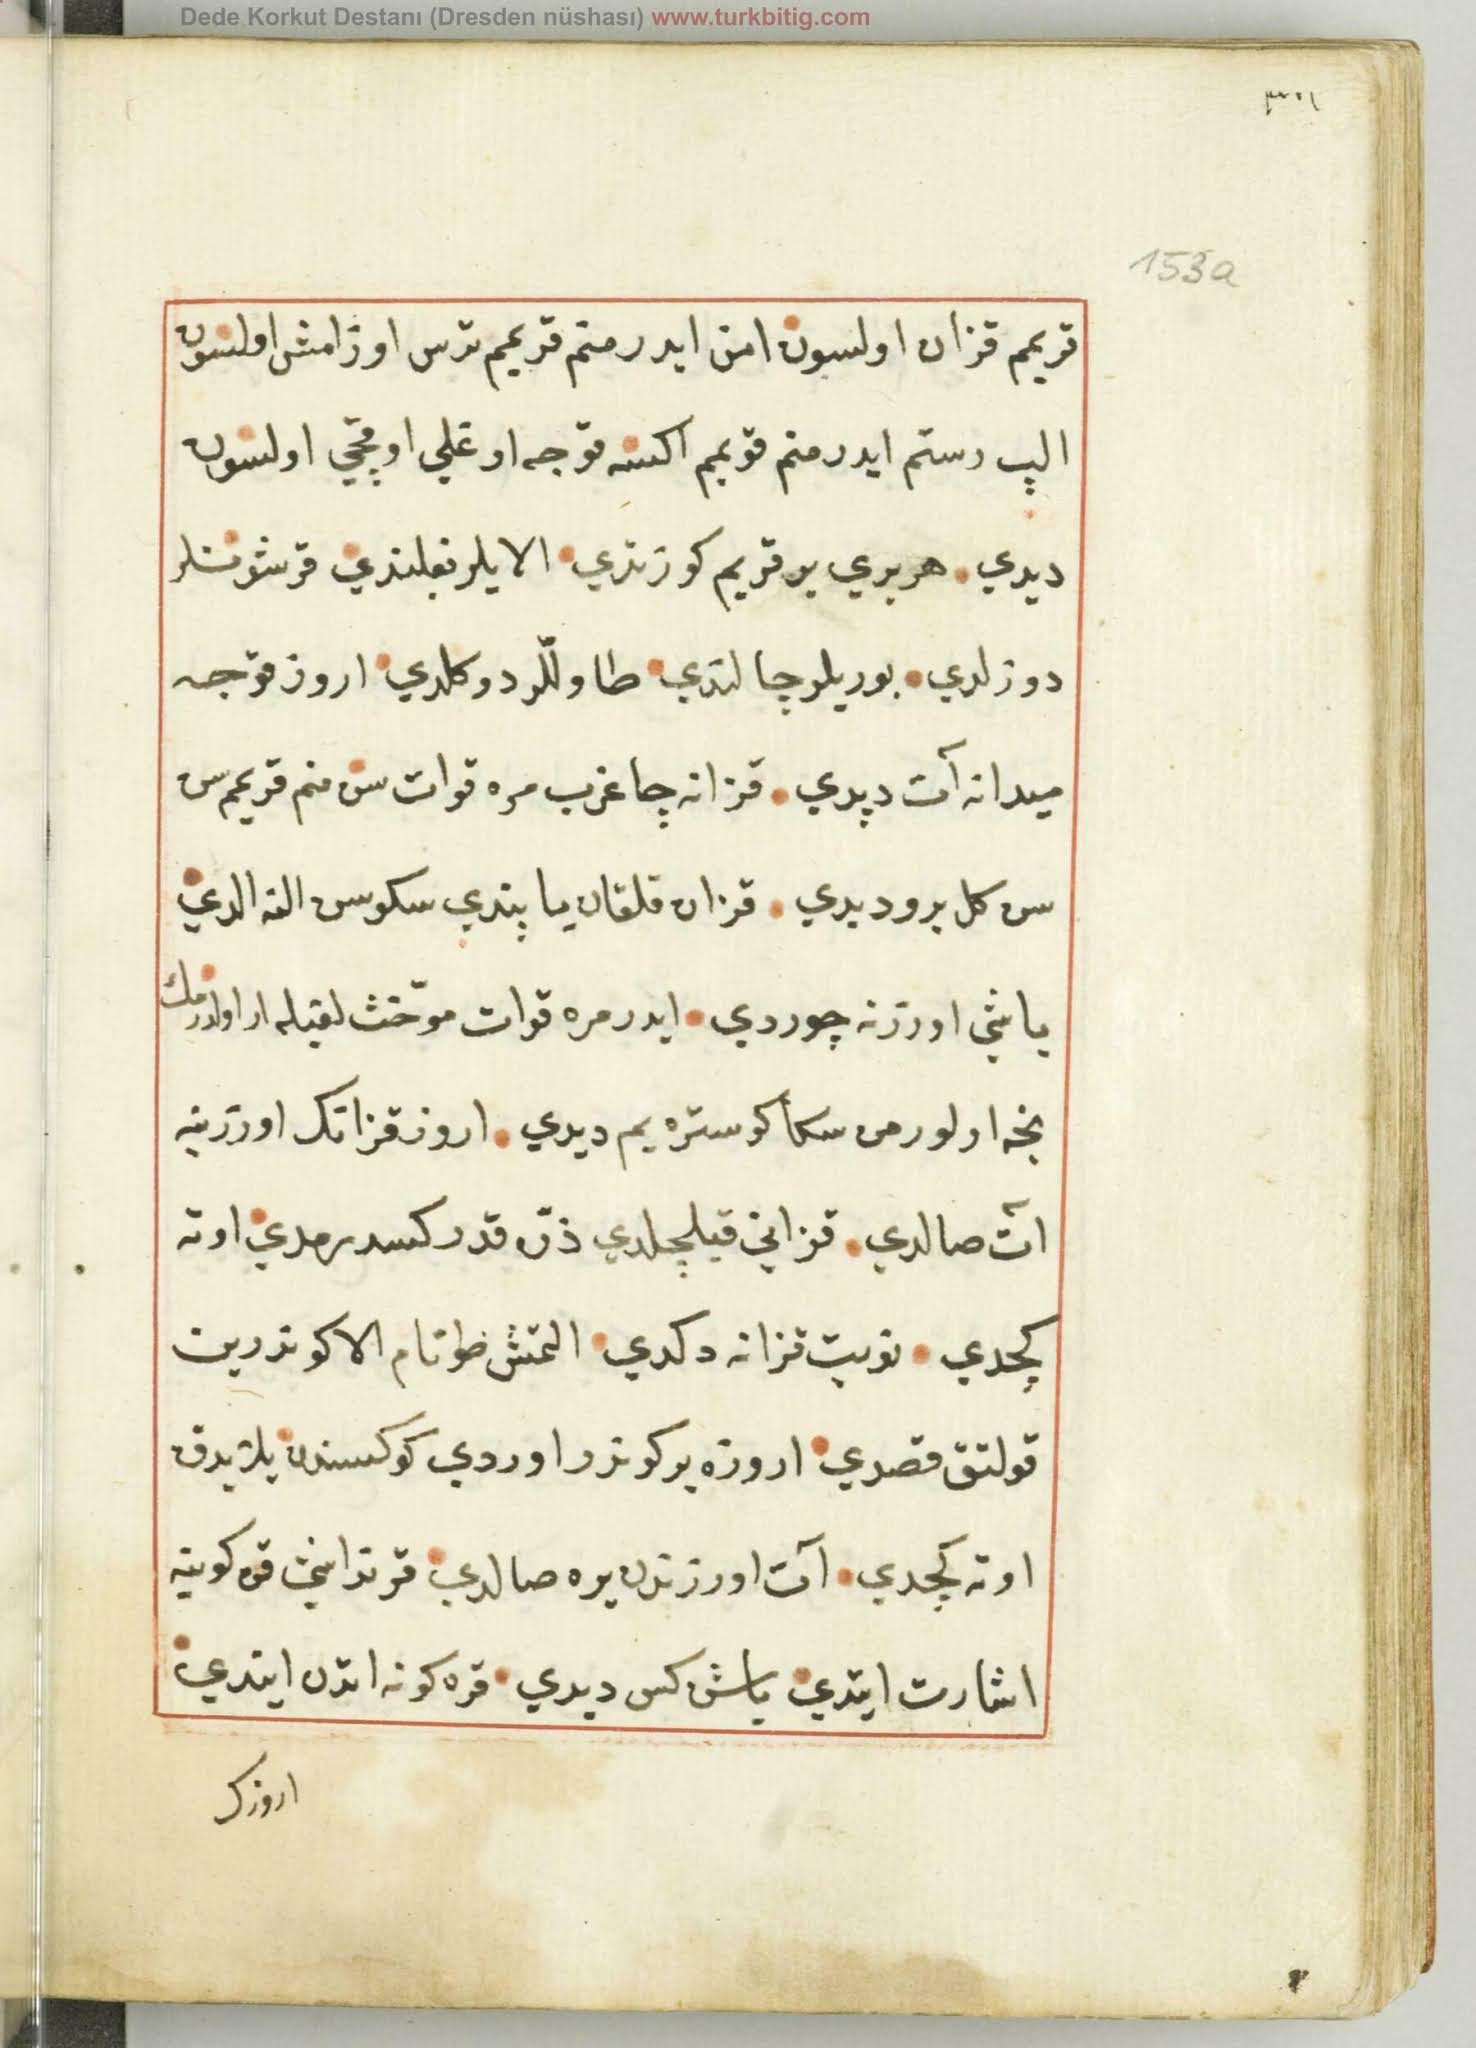 Dede Korkut Destanı (Dresden nüshası) www.turkbitig.com
153a
قريمم قزان اولسون امن ايدر منم قريمم ترس اوزامش اولسون
الپ رستم ايدر منم قريمم اكسه قوجه اوغلي اوقچي اولسون
ديدي هر بري بر قريم كوزتدي الايلر بغلندي قرشونلر
دوزلدي بوريلر چالندي طاوللر دوكلدي اروز قوجه
ميدانه آت دپدي قزانه چاغرب مره قوات سن منم قريمم سن
سن كل برو ديدي قزان قلقان ياپندي سكوسن النه الدي
باشي اوزرنه چوردي ايدر مره قوات موخنث لقيله ار اولدرمك
نجه اولور من سكا كوستره يم ديدي اروز قزانك اوزرينه
ات صالدي قزاني قيلچلدي ذره قدر كسدرمدي اوته
كچدي نوبت قزانه دكدي التمش طوتام الا كوندرين
قولتق قصدي اروزه بر كوندر اوردي كوكسندن يلزيدق
اوته كچدي آت اوزرندن يره صالدي قرنداشي قره كونيه
اشارت ايتدي باشن كس ديدي قره كونه اتدن ايندي
اروزك